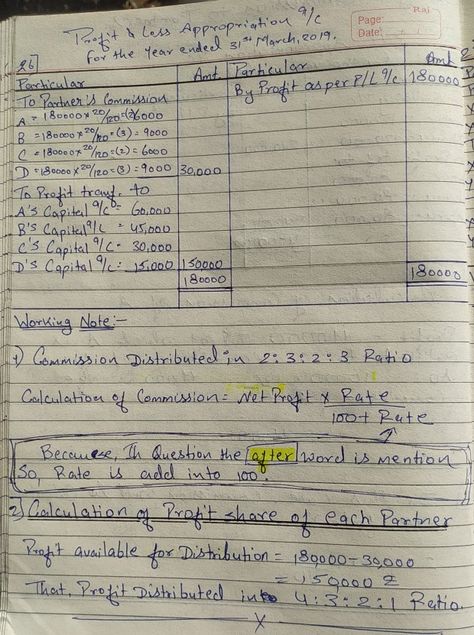 Raj
Page:
Date:
Profit & Loss Appropriation a/c
for the Year ended 31st March, 2019.
26]
Particular Amt Particular Amt
To Partner's Commission By Profit as per P/L a/c 180000
A = 180000 x 20/120 = (2) 6000
B = 180000 x 20/120 = (3) = 9000
C = 180000 x 20/120 = (2) = 6000
D = 180000 x 20/120 = (3) = 9000 30,000
To Profit transf. to
A's Capital a/c = 60,000
B's Capital a/c = 45,000
C's Capital a/c = 30,000
D's Capital a/c = 15,000 150000
180000 180000
Working Note:-
1) Commission Distributed in 2:3:2:3 Ratio
Calculation of Commission = Net Profit x Rate
100 + Rate
Because, In Question the after word is mention
So, Rate is add into 100.
2) Calculation of Profit share of each Partner
Profit available for Distribution = 180,000 - 30,000
= 150,000
That, Profit Distributed into 4:3:2:1 Ratio.
x